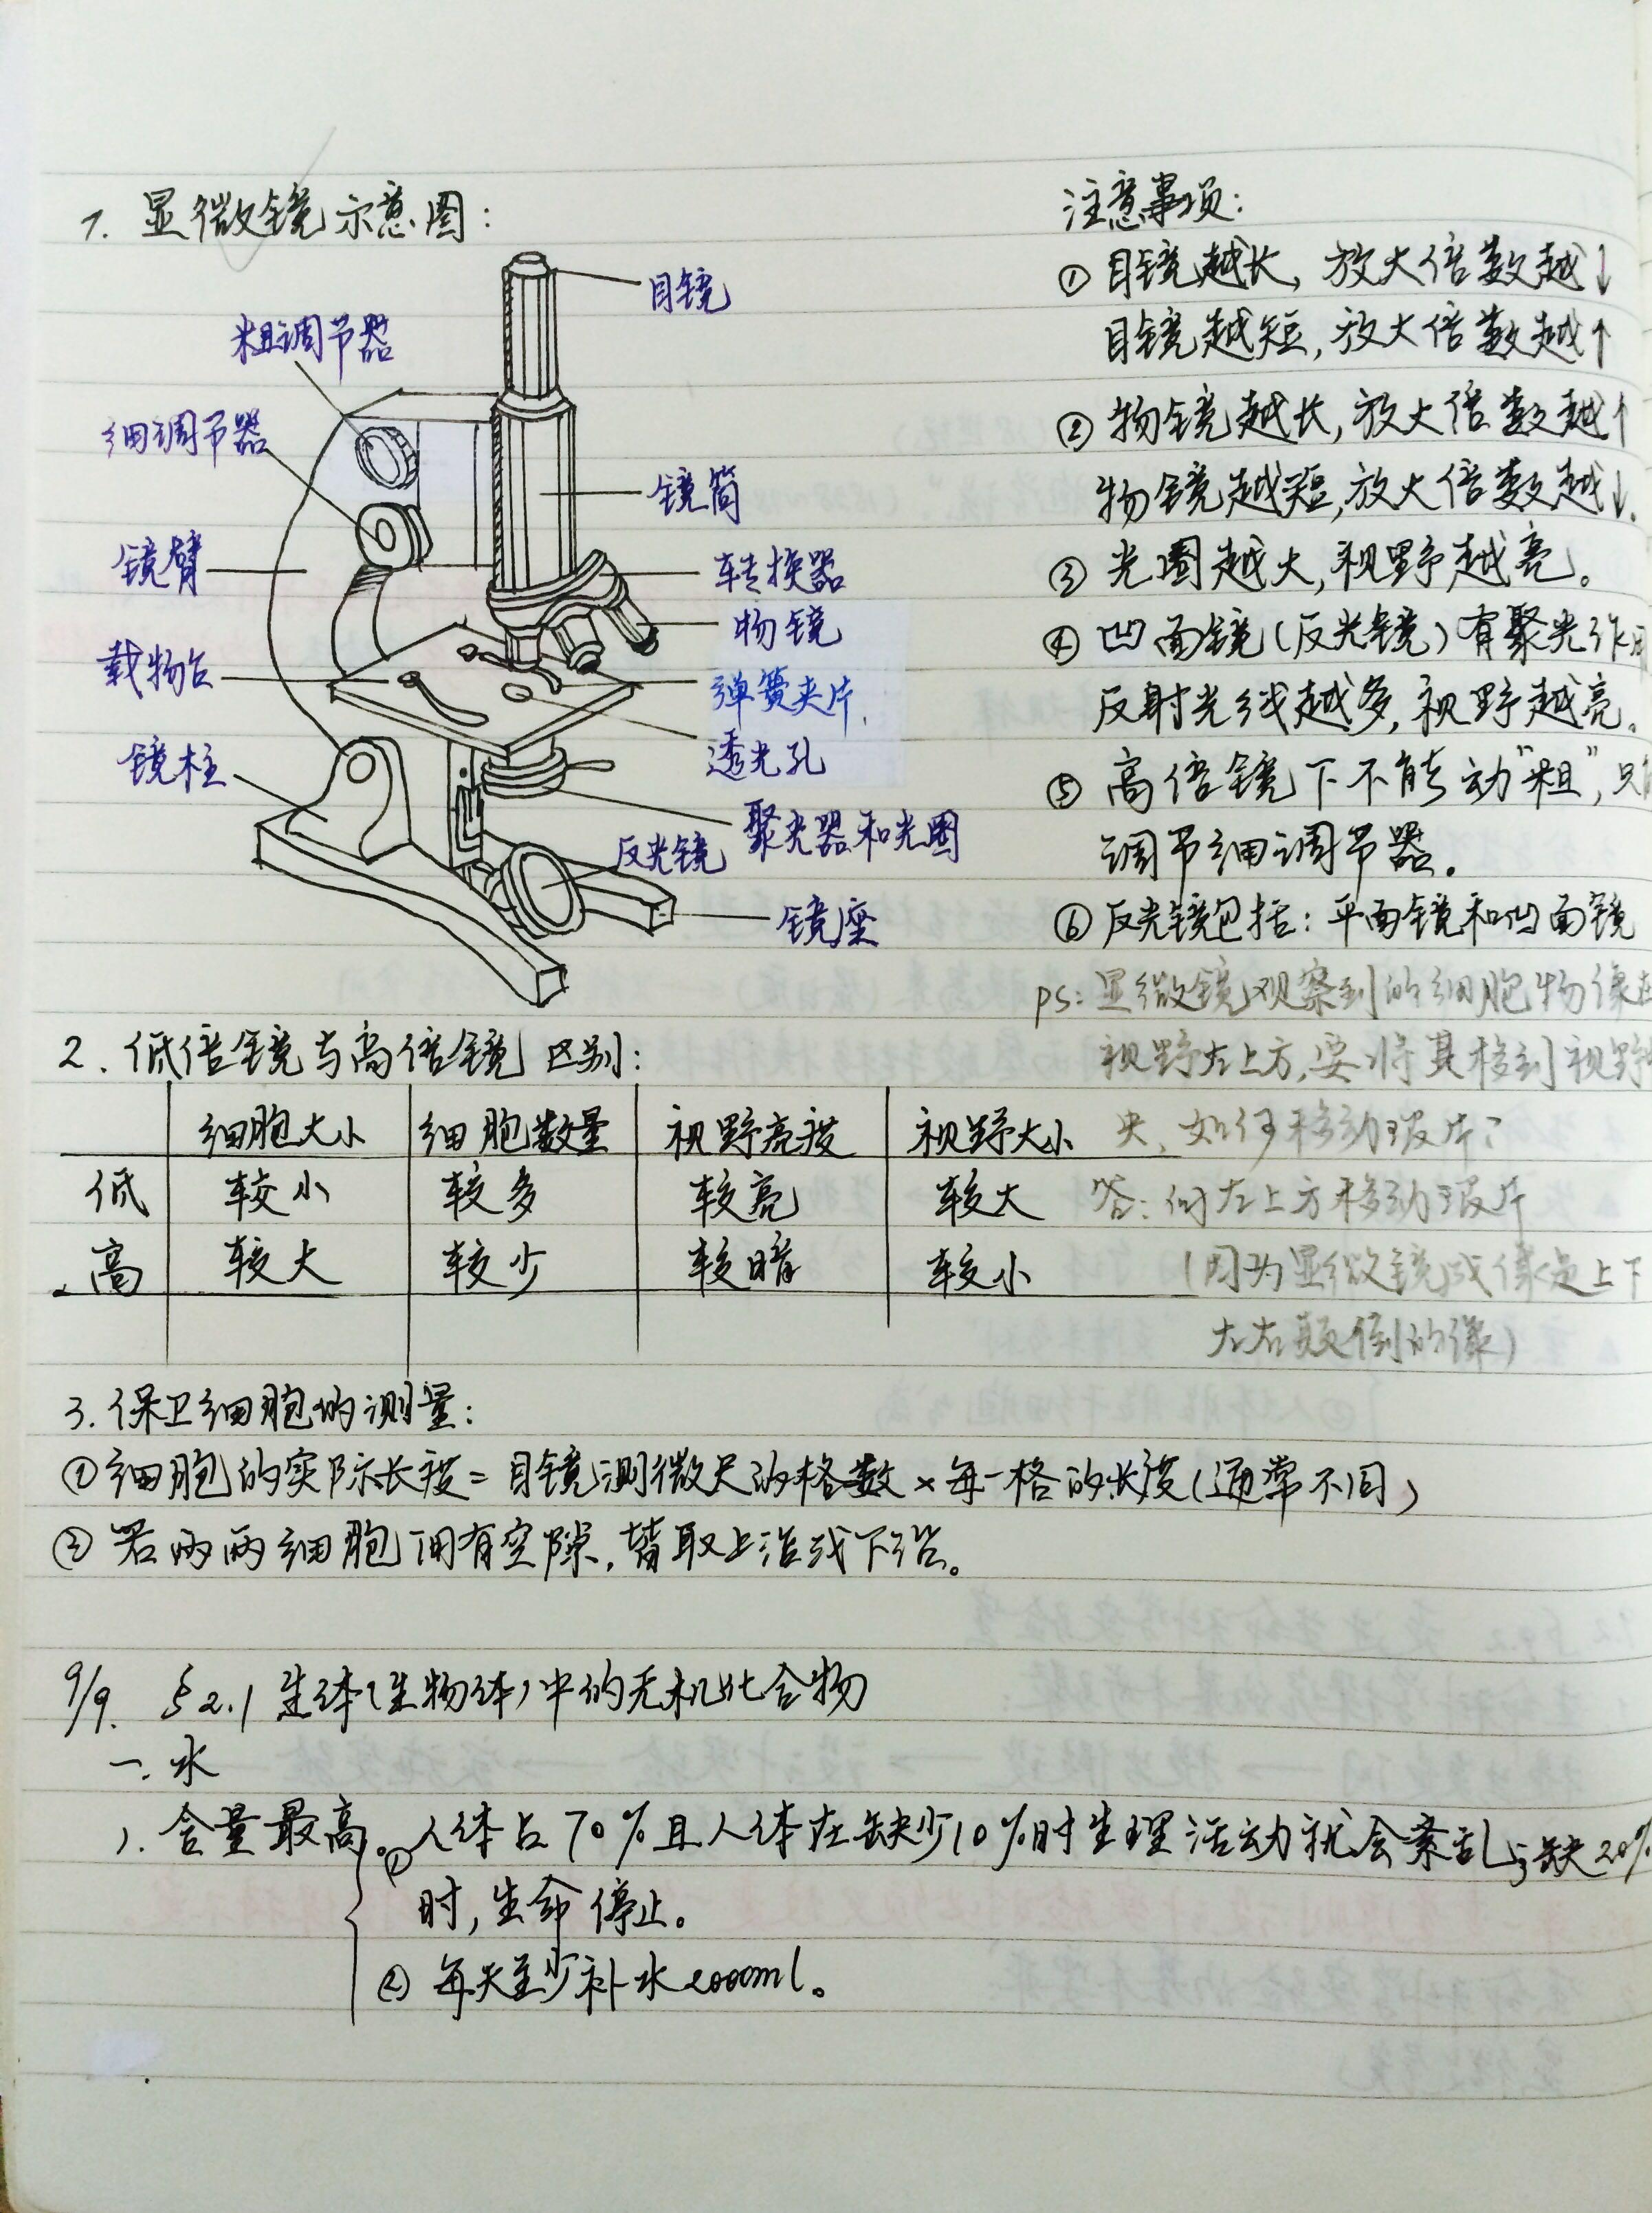 1. 显微镜示意图:
目镜
粗调节器
细调节器
镜筒
镜臂
转换器
物镜
载物台
弹簧夹片
透光孔
镜柱
聚光器和光圈
反光镜
镜座
注意事项:
① 目镜越长, 放大倍数越↓
目镜越短, 放大倍数越↑
② 物镜越长, 放大倍数越↑
物镜越短, 放大倍数越↓.
③ 光圈越大, 视野越亮。
④ 凹面镜(反光镜)有聚光作用
反射光线越多, 视野越亮。
⑤ 高倍镜下不能动"粗", 只
调节细调节器.
⑥ 反光镜包括: 平面镜和凹面镜
ps: 显微镜观察到的细胞物像在
视野左上方, 要将其移到视野
央, 如何移动玻片?
答: 向左上方移动玻片
(因为显微镜成像是上下
左右颠倒的像)
2. 低倍镜与高倍镜区别:
细胞大小 细胞数量 视野亮度 视野大小
低 较小 较多 较亮 较大
高 较大 较少 较暗 较小
3. 保卫细胞的测量:
① 细胞的实际长度 = 目镜测微尺的格数 × 每一格的长度(通常不同)
② 若两两细胞间有空隙, 皆取上沿或下沿。
9/9. §2.1 生体(生物体)中的无机化合物
一. 水
1. 含量最高。① 人体占70%且人体在缺少10%时生理活动就会紊乱; 缺20%
时, 生命停止。
② 每天至少补水2000ml。